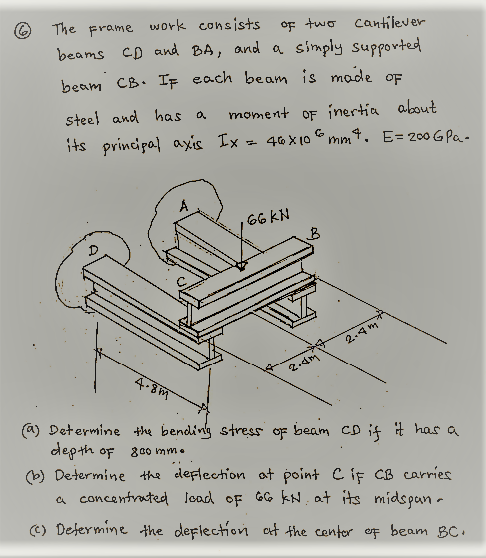 ⑥ The frame work consists of two cantilever
beams CD and BA, and a simply supported
beam CB. If each beam is made of
steel and has a moment of inertia about
its principal axis Ix = 46x10⁶ mm⁴. E=200GPa.
A
66 kN
B
D
C
2.4m
2.4m
4.8m
(a) Determine the bending stress of beam CD if it has a
depth of 800 mm.
(b) Determine the deflection at point C if CB carries
a concentrated load of 66 kN at its midspan.
(c) Determine the deflection at the center of beam BC.